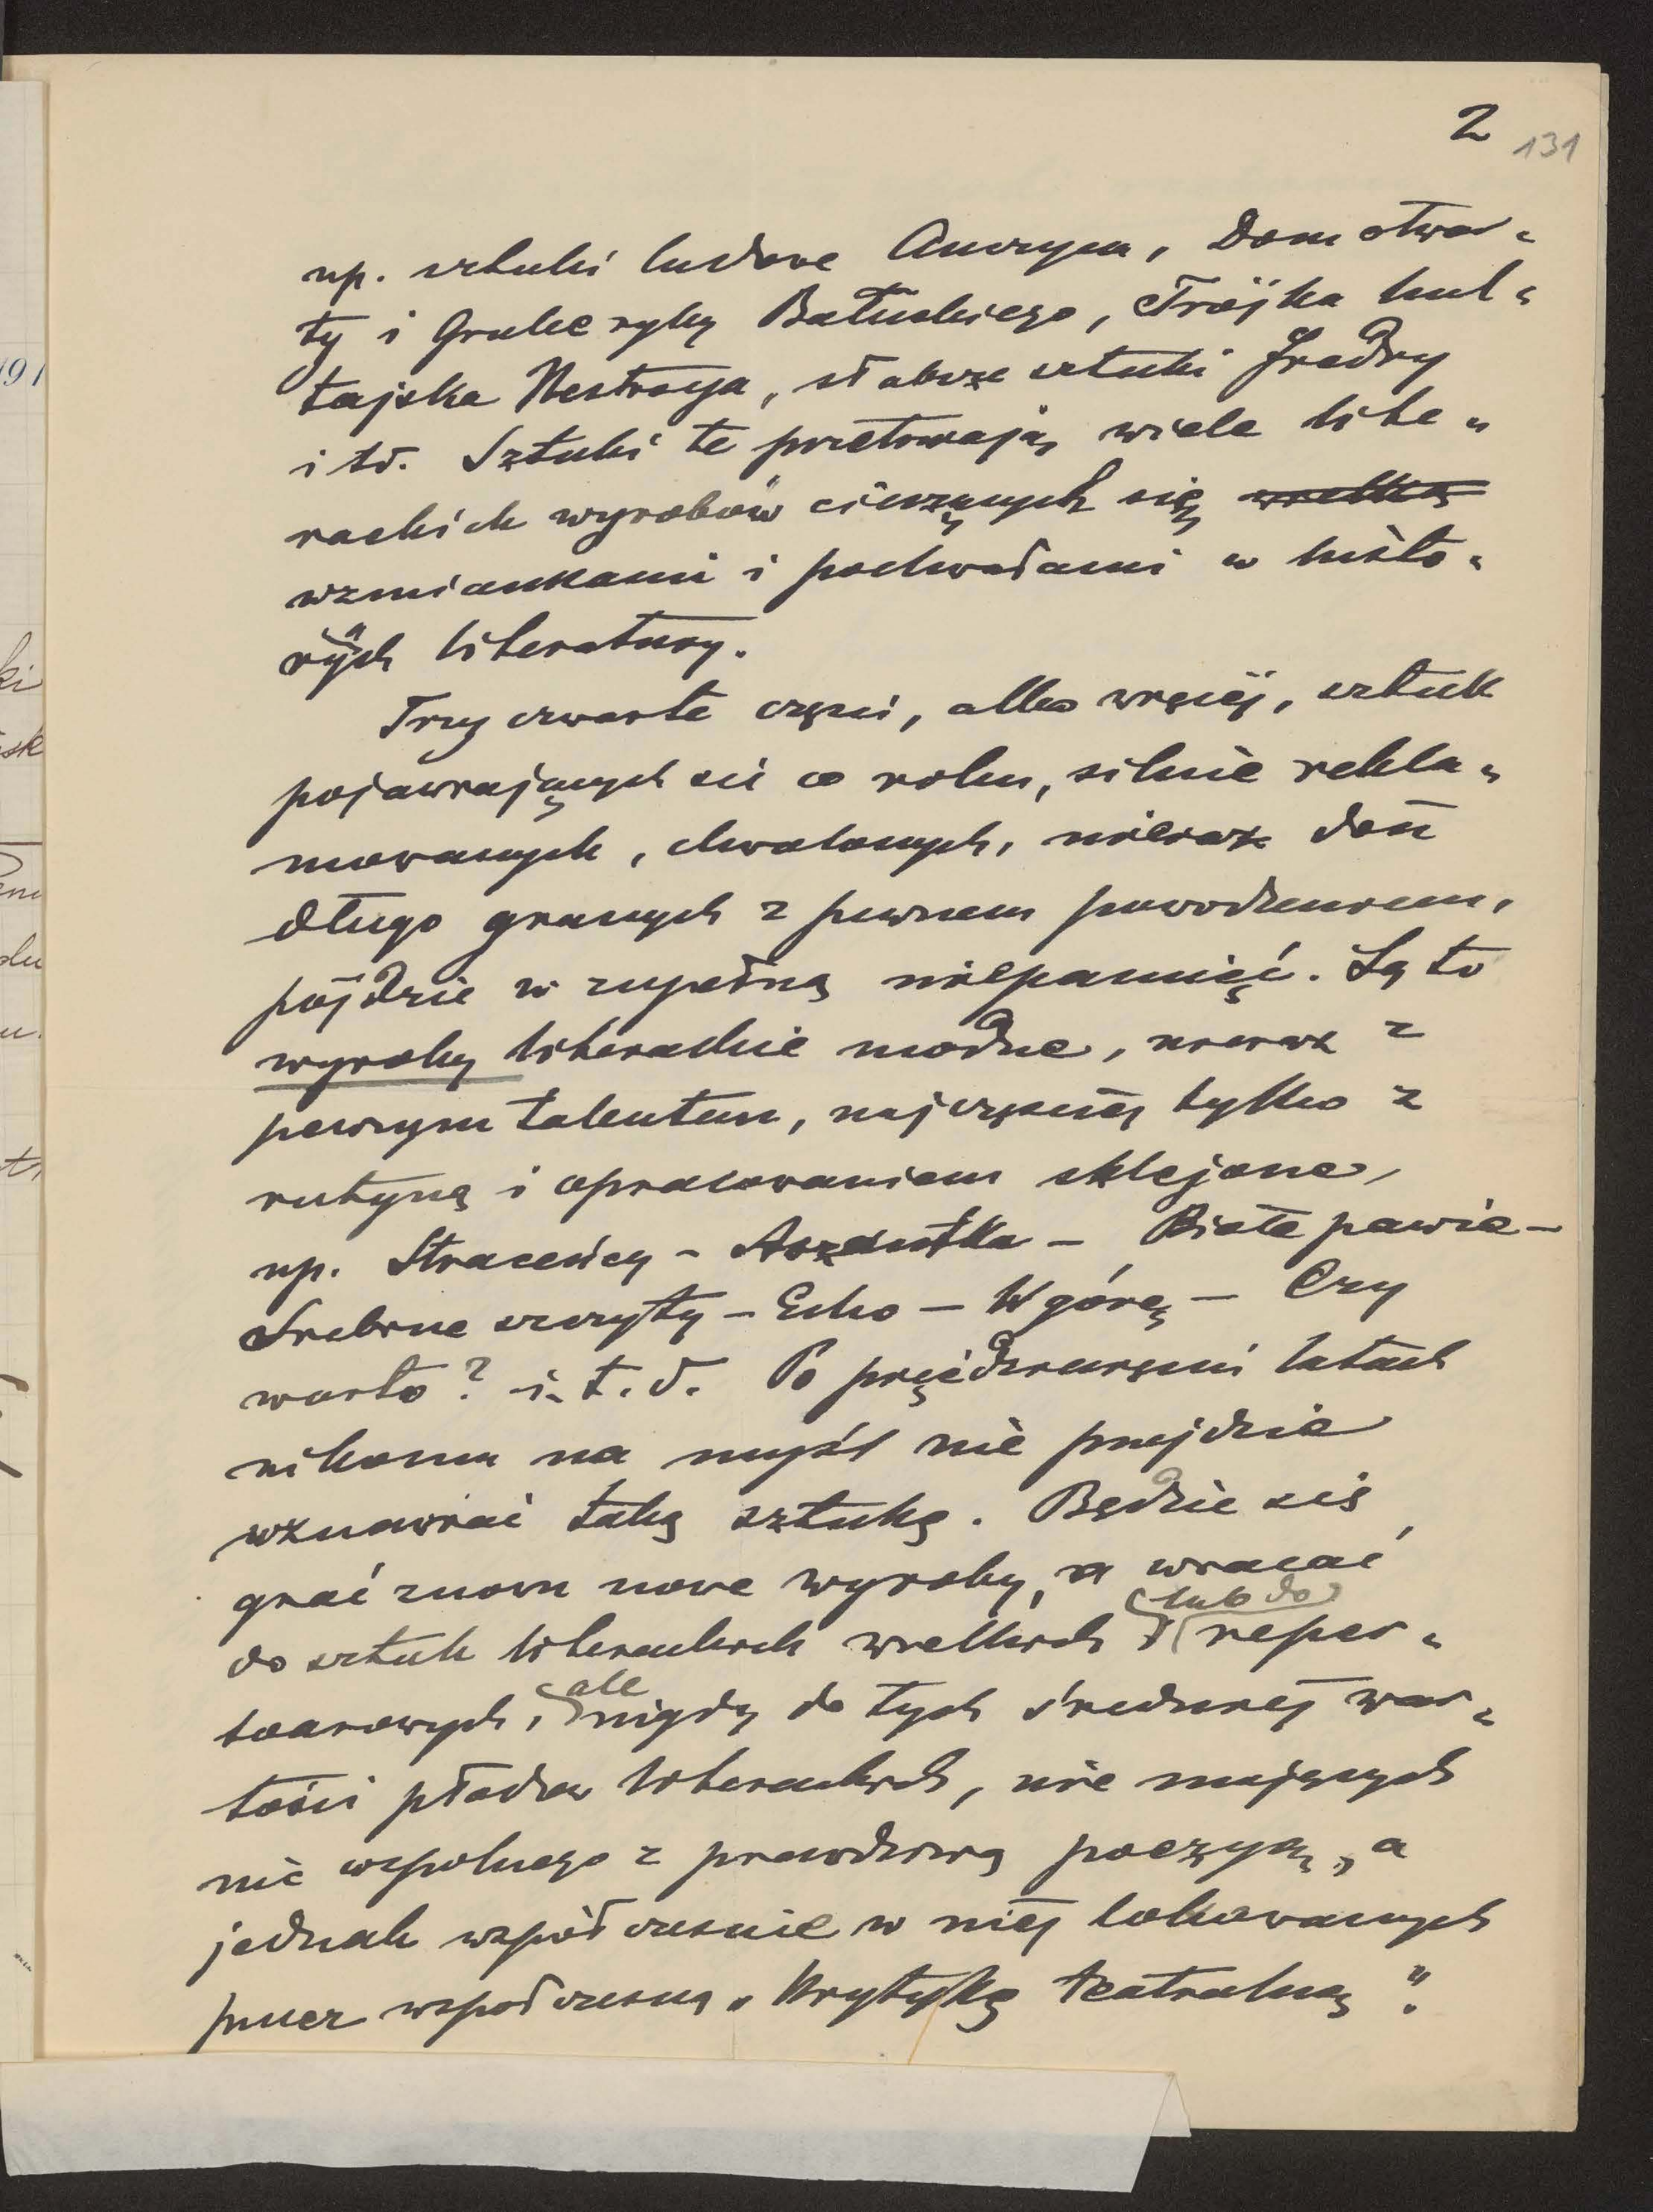 2 131
np. sztuki ludowe Anczyca, Dom otwar-
ty i Grube ryby Bałuckiego, Trójka hul-
tajska Nestroya, słabsze sztuki Fredry
i td. Sztuki te przetrwają wiele lite-
rackich wyrobów cieszących się wielką
wzmiankami i pochwałami w histo-
ryach literatury.
Trzy czwarte części, albo więcej, sztuk
pojawiających się co roku, silnie rekla-
mowanych, chwalonych, nieraz dość
długo granych z pewnem powodzeniem,
pójdzie w zupełną niepamięć. Są to
wyroby literackie modne, nieraz z
pewnym talentem, najczęściej tylko z
rutyną i opracowaniem sklejone,
np. Straceńcy - Aszantka - Białe pawie -
Srebrne szczyty - Echo - W górę - Czy
warto? i. t. d. Po pięćdziesięciu latach
nikomu na myśl nie przyjdzie
wznawiać taką sztukę. Będzie się
grać znowu nowe wyroby, a wracać
do sztuk literackich wielkich lub do reper-
toarowych, ale nigdy do tych średniej war-
tości płodów literackich, nie mających
nic wspólnego z prawdziwą poezyą, a
jednak współcześnie w niej lokowanych
przez współczesną „Krytykę teatralną".